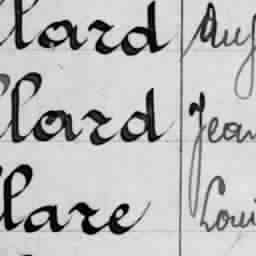 llard Aug
llard Jean
llare Loui